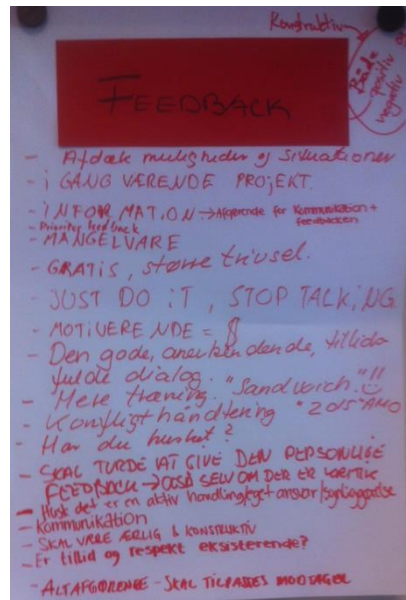 Konstruktiv
Både
positiv og
negativ
FEEDBACK
- Afdæk muligheder og situationer
- i GANG VÆRENDE PROJEKT.
- INFORMATION → Afgørende for kommunikation +
feedbacken
- Prioriter feedback
- MANGELVARE
- GRATIS, større trivsel.
- JUST DO iT, STOP TALKiNG
- MOTIVERENDE =
- Den gode, anerkendende, tillids
fulde dialog. "Sandwich"!!
- Mere træning.
- Konflikthåndtering "2015" AMO
- Har du husket?
- SKAL TURDE AT GIVE DEN PERSONLIGE
FEEDBACK → OGSÅ SELV OM DER ER KRITIK
- Husk det er en aktiv handling/eget ansvar/
- Kommunikation
- SKAL VÆRE ÆRLIG & KONSTRUKTIV
- Er tillid og respekt eksisterende?
- ALTAFGØRENDE - SKAL TILPASSES MODTAGER